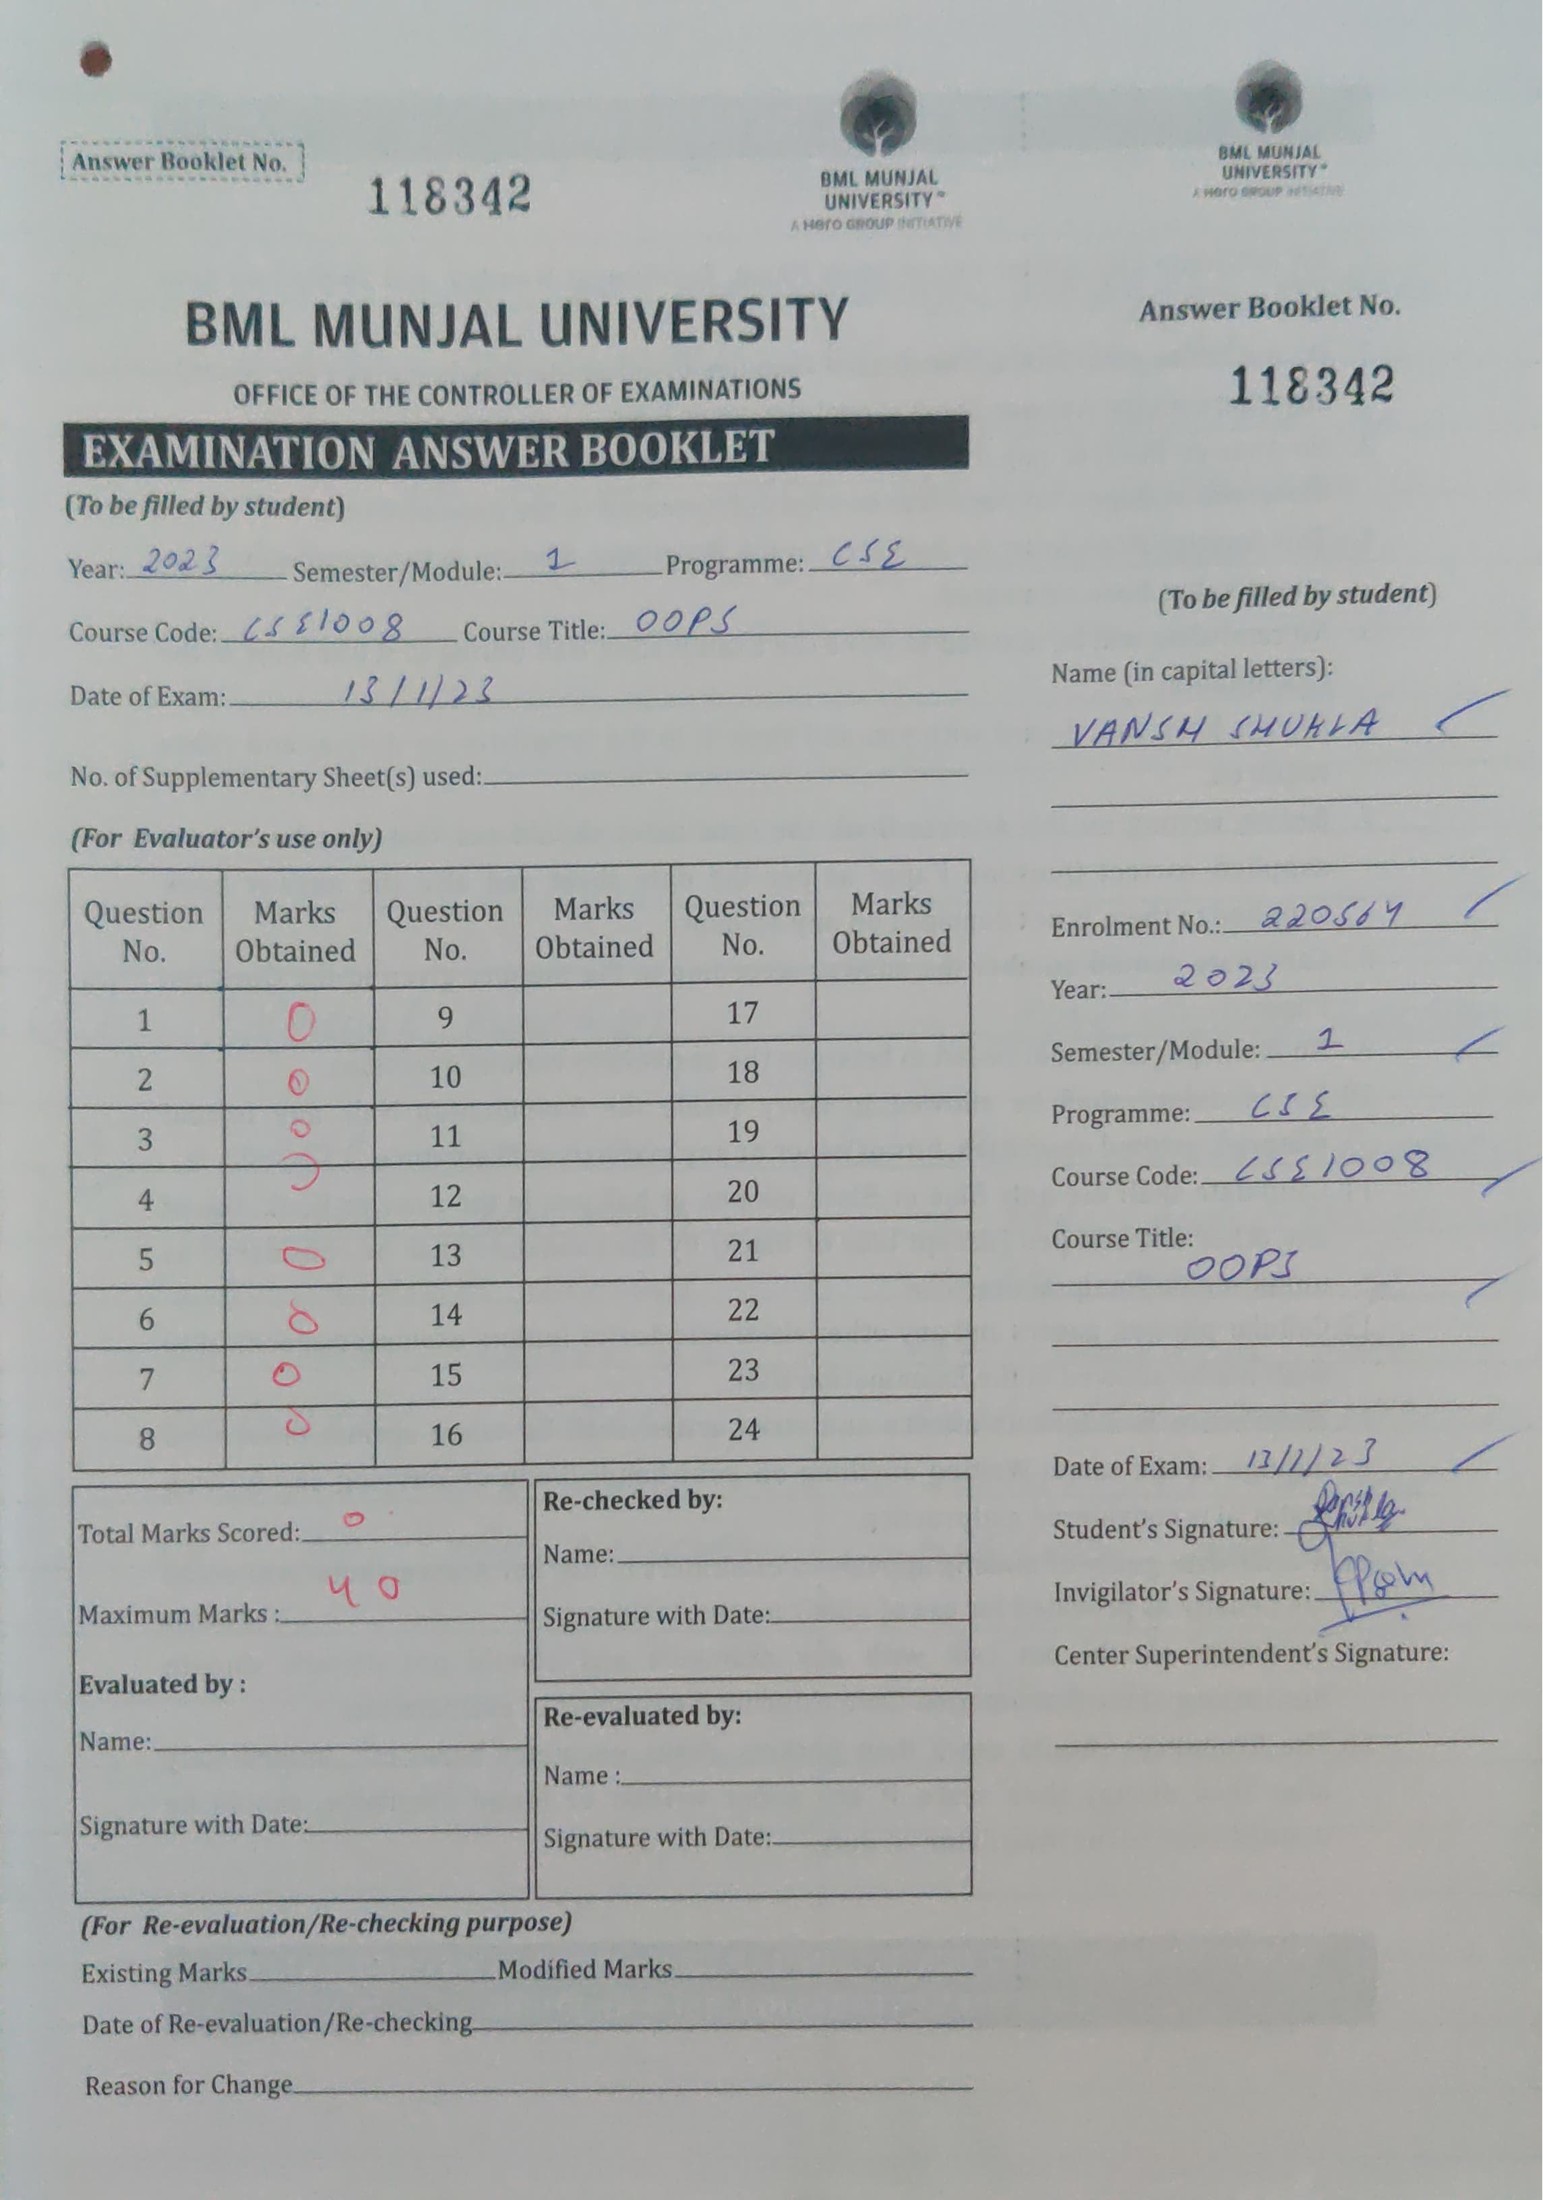 Answer Booklet No.
118342
BML MUNJAL
UNIVERSITY
A Hero GROUP INITIATIVE
BML MUNJAL
UNIVERSITY
A Hero GROUP INITIATIVE
BML MUNJAL UNIVERSITY
OFFICE OF THE CONTROLLER OF EXAMINATIONS
EXAMINATION ANSWER BOOKLET
(To be filled by student)
Year: 2023 Semester/Module: 1 Programme: CSE
Course Code: CSE1008 Course Title: OOPS
Date of Exam: 13/1/23
No. of Supplementary Sheet(s) used:
(For Evaluator's use only)
Question No. Marks Obtained Question No. Marks Obtained Question No. Marks Obtained
1 0 9 17
2 0 10 18
3 0 11 19
4 0 12 20
5 0 13 21
6 0 14 22
7 0 15 23
8 0 16 24
Total Marks Scored: 0
Maximum Marks : 40
Evaluated by :
Name:
Signature with Date:
Re-checked by:
Name:
Signature with Date:
Re-evaluated by:
Name :
Signature with Date:
(For Re-evaluation/Re-checking purpose)
Existing Marks Modified Marks
Date of Re-evaluation/Re-checking
Reason for Change
Answer Booklet No.
118342
(To be filled by student)
Name (in capital letters):
VANSH SHUKLA
Enrolment No.: 220564
Year: 2023
Semester/Module: 1
Programme: CSE
Course Code: CSE1008
Course Title:
OOPS
Date of Exam: 13/1/23
Student's Signature:
Invigilator's Signature:
Center Superintendent's Signature: